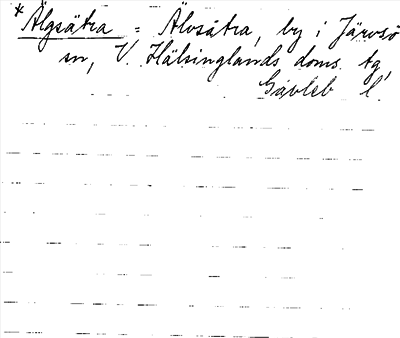 * Älgsätra = Älvsätra, by i Järvsö
sn, V. Hälsinglands doms. tg,
Gävleb l.